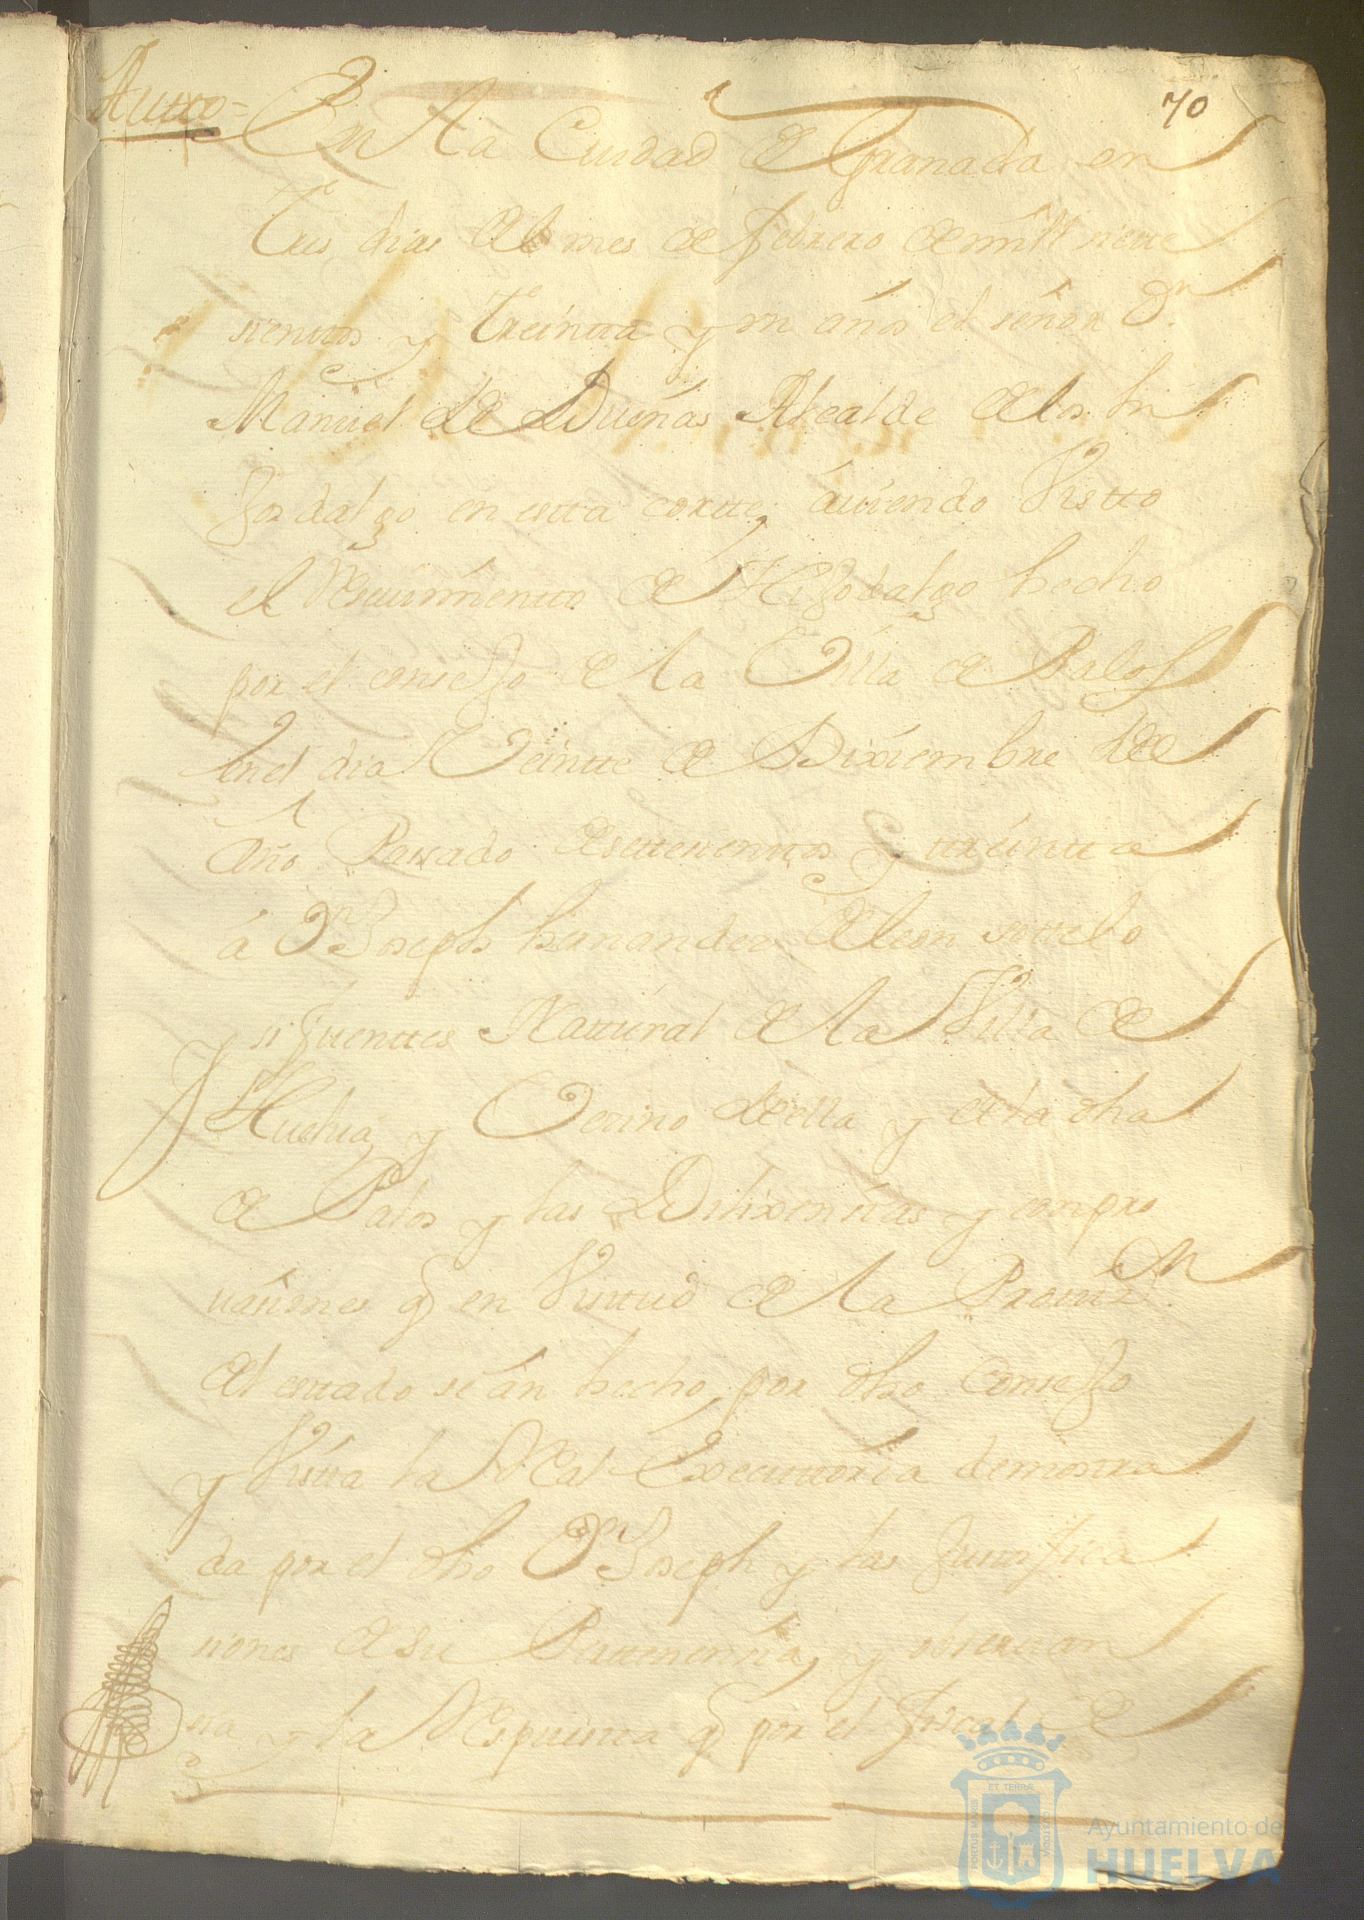 70
Autto=
En la Ciudad de Granada en
tres dias del mes de febrero de mill siette
sientos y treinta y un años el señor Dn.
Manuel de Dueñas Alcalde de los hi
Josdalgo en esta cortte, áviendo Vistto
el Resevimiento de Hijodalgo hecho
por el consejo de la Villa de Palos
en el dia Veinte de Diziembre del
Año Pasado de settesientos y treinta
á Dn. Joseph hernandez de leon sottelo
y sifuenttes Nattural de la Villa de
Huelva, y Vezino de ella y de la dha
de Palos y las Dilixencias y compro
vasiones q en Virttud de la Provizn.
de el esttado se án hecho por dho Consejo
y Vista la Real Executtoria demostra
da por el dho Dn. Joseph y las Justifica
siones de su Perttenencia, y observan
cia y la Respuesta q por el fiscal de
ET TERRÆ
PORTUS MARIS
CUSTODIA
Ayuntamiento de
HUELVA